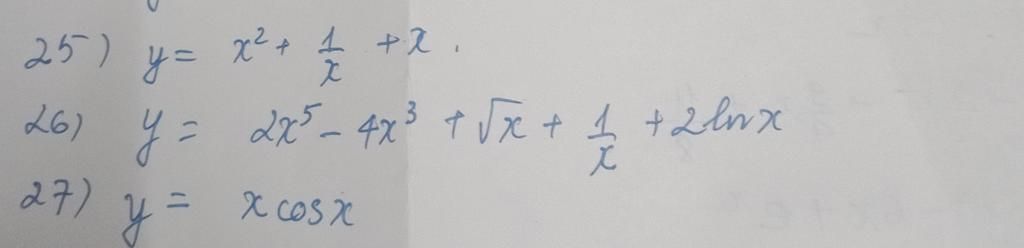 25) y = x² + 1/x + x.
26) y = 2x⁵ - 4x³ + √x + 1/x + 2lnx
27) y = x cosx